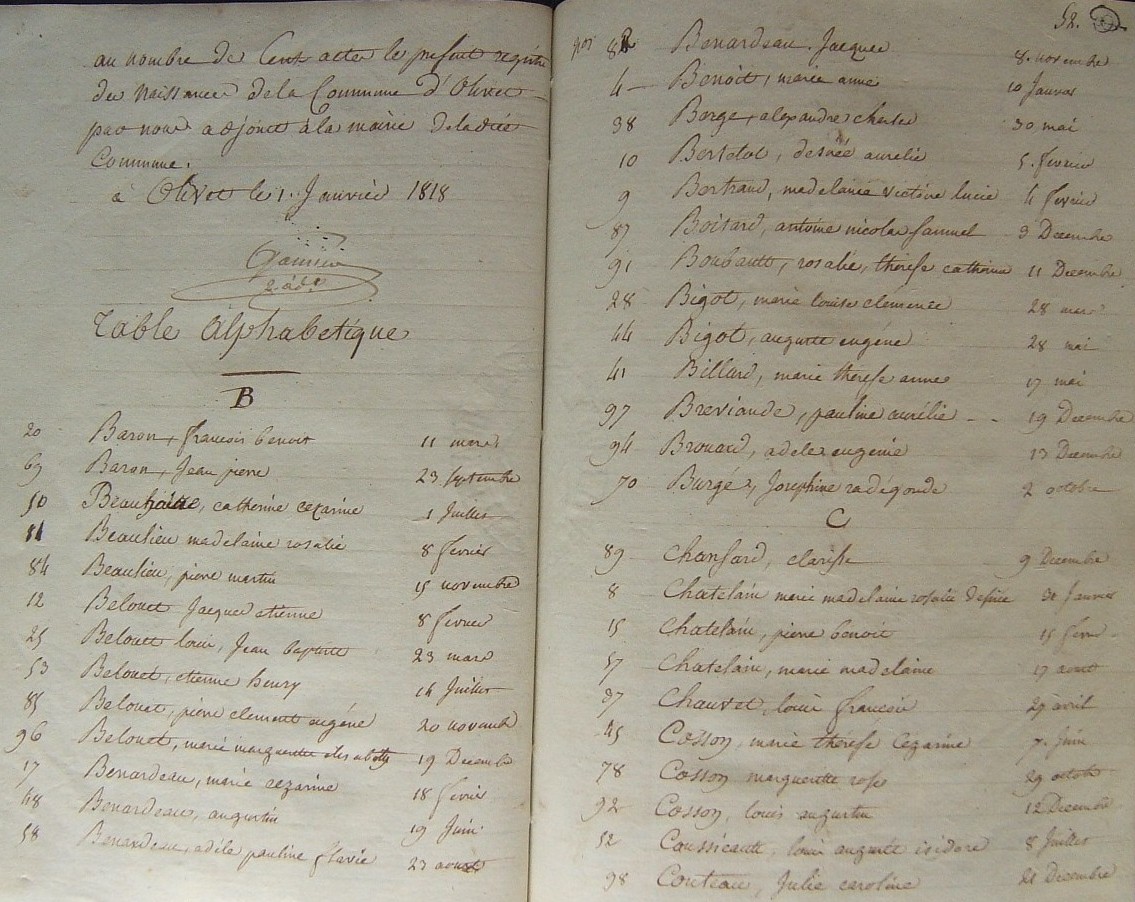 au nombre de Cent actes le present registre
des Naissances de la Commune d'Olivet
par nous adjoint à la mairie de ladite
Commune.
à Olivet le 1. Janvier 1818
2. adj.
Table Alphabetique
B
20 Baron, francois benoit 11 mars
69 Baron, Jean pierre 23 septembre
50 catherine cezarine 1 Juillet
Beaulieu madelaine rosalie 8 fevrier
84 Beaulieu, pierre martin 15 novembre
12 Belouet Jacques etienne 8 fevrier
25 Belouet louis, Jean baptiste 23 mars
53 Belouet, etienne henry 14 Juillet
85 Belouet, pierre clement eugéne 20 novembre
96 Belouet, marie margueritte elisabeth 19 Decembre
17 Benardeau, marie cezarine 18 fevrier
48 Benardeau, augustin 19 Juin
58 Benardeau, adéle pauline flavie 23 aoust
52.
82 Benardeau, Jacques 8. novembre
4 Benoit, marie anne 10 Janvier
38 Berge, alexandre charles 30 mai
10 Bertelot, desirée aurelie 5. fevrier
9 Bertrand, madelaine victoire lucie 4 fevrier
87 Boitard, antoine nicolas samuel 3 Decembre
91 Boubault, rosalie, therese catherine 11 Decembre
28 Bigot, marie louise clemence 28 mars
44 Bigot, auguste eugéne 28 mai
41 Billard, marie therese anne 17 mai
97 Breviande, pauline aurélie 19 Decembre
94 Brouard, adele eugenie 13 Decembre
70 Burgé, Josephine radégonde 2 octobre
C
89 Chansard, clarisse 9 Decembre
8 Chatelain marie madelaine rosalie Janvier
15 Chatelain, pierre benoit 15 fevr
57 Chatelain, marie madelaine 17 aoust
37 Chauvet, louis francois 29 avril
45 Cosson, marie thérése Cezarine 7. Juin
78 Cosson marguerite rose 29 octobre
92 Cosson, louis augustin 12 Decembre
52 Coussicault, louis auguste isidore 8 Juillet
98 Couteau, Julie caroline 21 Decembre